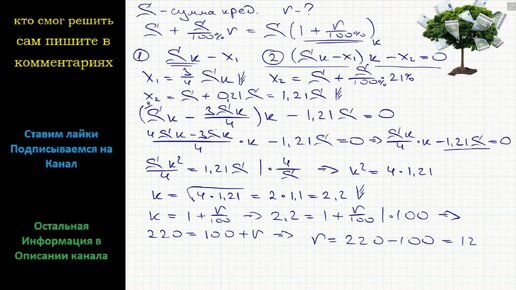 кто смог решить
сам пишите в
комментариях
Ставим лайки
Подписываемся на
Канал
Остальная
Информация в
Описании канала
S - сумма кред. r - ?
S + S/100% r = S(1 + r/100%) k
① Sk - x₁ ② (Sk - x₁)k - x₂ = 0
x₁ = 3/4 Sk x₂ = S + S/100% · 21%
x₂ = S + 0,21S = 1,21S
(Sk - 3Sk/4)k - 1,21S = 0
4Sk-3Sk/4 · k - 1,21S = 0 => Sk/4 · k - 1,21S = 0
Sk²/4 = 1,21S | · 4/S => k² = 4 · 1,21
k = √4·1,21 = 2·1,1 = 2,2
k = 1 + r/100 => 2,2 = 1 + r/100 | · 100 =>
220 = 100 + r => r = 220 - 100 = 12